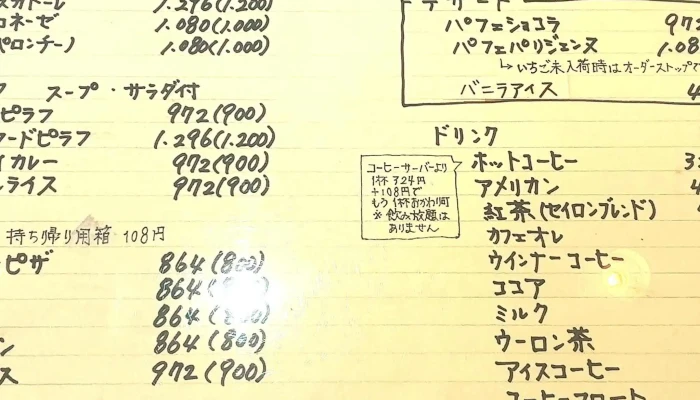 1.296(1.200)
コネーゼ 1.080(1.000)
ペロンチーノ 1.080(1.000)
スープ・サラダ付
ピラフ 972(900)
ードピラフ 1.296(1.200)
イカレー 972(900)
ライス 972(900)
持ち帰り用箱 108円
ピザ 864(800)
864
864
ン 864(800)
ス 972(900)
パフェショコラ 972
パフェパリジェンヌ 1.08
いちご未入荷時はオーダーストップで
バニラアイス 4
ドリンク
コーヒーサーバーより
1杯 324円
+108円で
もう1杯おかわり可
※飲み放題は
ありません
ホットコーヒー 3
アメリカン 4
紅茶(セイロンブレンド)
カフェオレ
ウインナーコーヒー
ココア
ミルク
ウーロン茶
アイスコーヒー
コーヒーフロート